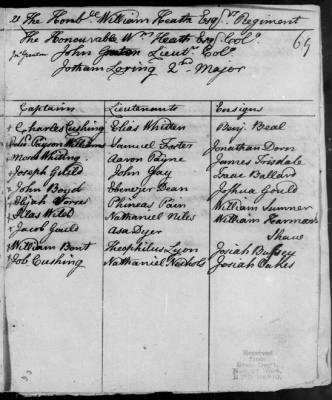 21 The Honble William Heath Esqrs Regiment
The Honourable Wm Heath Esqr Colo 69
Jn Greaton John Greaton Lieut. Colo
Jotham Loring 2nd Major
Captains Lieutenants Ensigns
+ Charles Cushing Elias Whiton Benj. Beal
Payson Williams Samuel Foster Jonathan Dorn
+ Moses Whiting Aaron Payne James Tisdale
+ Joseph Guild John Gay Isaac Bullard
+ John Boyd Ebenezer Dean Joshua Gould
+ Elijah Vorres Phineas Pain William Sumner
+ Silas Wild Nathaniel Niles William Harman
+ Jacob Gould Asa Dyer Shaw
+ William Bent Theophilus Lyon Josiah Bussey
+ Job Cushing Nathaniel Nichols Josiah Oakes
Received
from